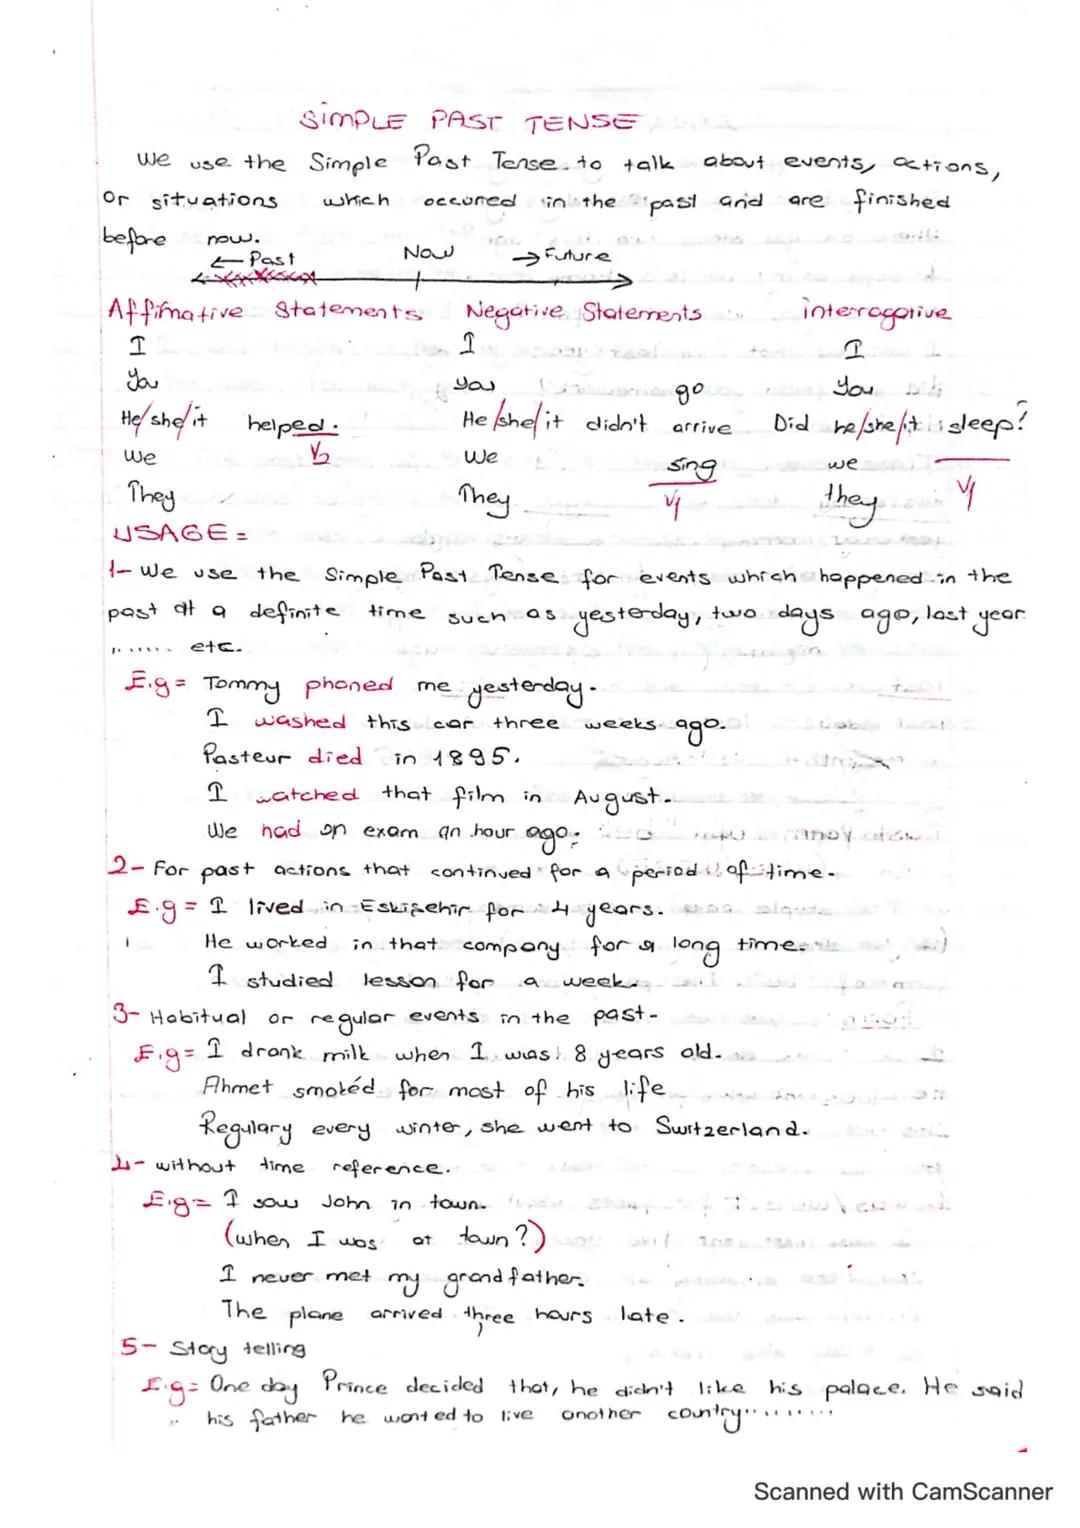 SIMPLE PAST TENSE
We use the Simple Past Tense to talk about events, actions,
or situations which occured in the past and are finished
before now.
← Past Now → Future
Affimative Statements Negative Statements interrogative
I I I
You you go You
He/she/it helped. He/she/it didn't arrive Did he/she/it sleep?
We V2 We sing we V1
They They V1 they
USAGE =
1- We use the Simple Past Tense for events which happened in the
past at a definite time such as yesterday, two days ago, last year
....... etc.
E.g = Tommy phoned me yesterday.
I washed this car three weeks ago.
Pasteur died in 1895.
I watched that film in August.
We had an exam an hour ago.
2- For past actions that continued for a period of time.
E.g = I lived in Eskişehir for 4 years.
He worked in that company for a long time.
I studied lesson for a week.
3- Habitual or regular events in the past.
E.g = I drank milk when I was 8 years old.
Ahmet smoked for most of his life
Regulary every winter, she went to Switzerland.
4- without time reference.
E.g = I saw John in town.
(when I was at town?)
I never met my grandfather.
The plane arrived three hours late.
5- Story telling
E.g = One day Prince decided that, he didn't like his palace. He said
his father he wanted to live another country..........
Scanned with CamScanner